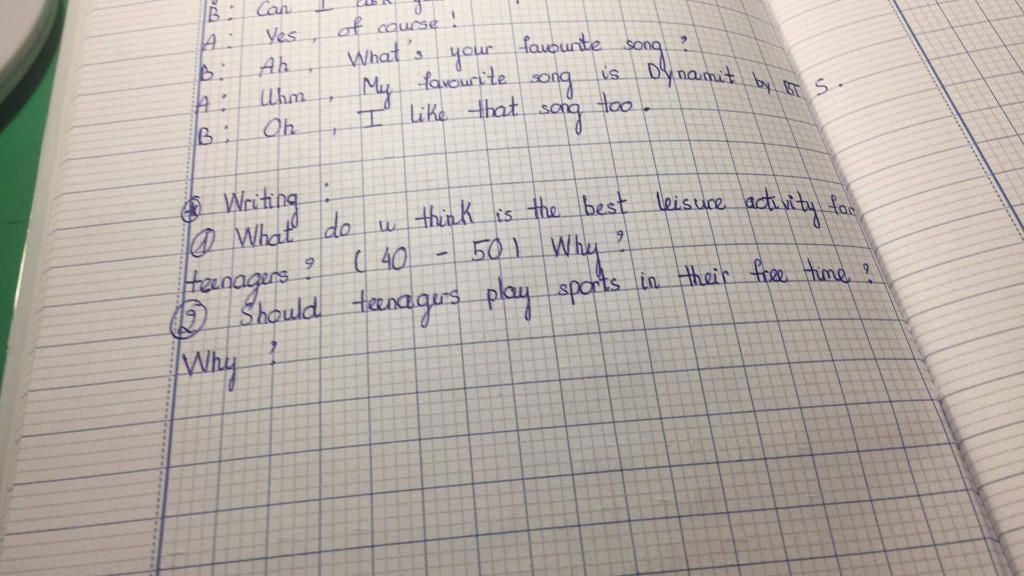 B: Can I ask
A: Yes, of course!
B: Ah, What's your favourite song?
A: Uhm, My favourite song is Dynamit by BTS.
B: Oh, I like that song too.
Writing:
① What do u think is the best leisure activity for
teenagers? (40 - 50) Why?
② Should teenagers play sports in their free time?
Why?